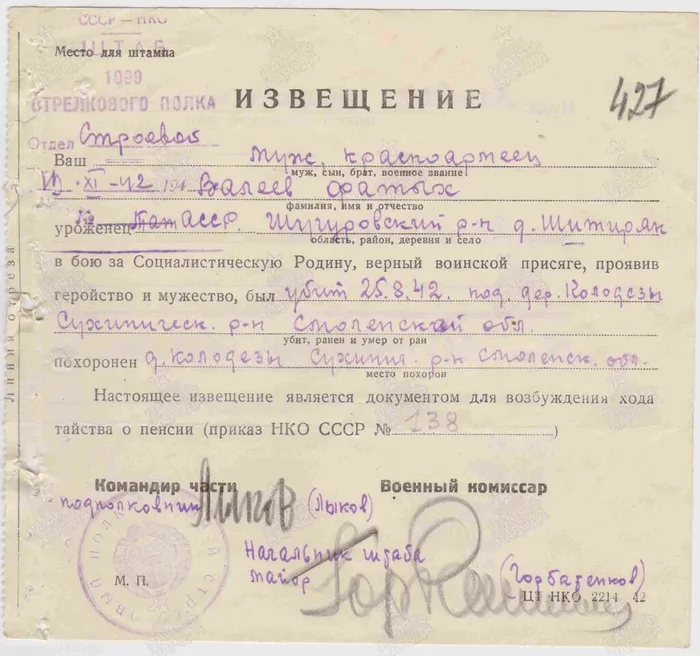 СССР — НКО
ШТАБ
Место для штампа
1099
СТРЕЛКОВОГО ПОЛКА
ИЗВЕЩЕНИЕ
427
Отдел Строевой
Ваш муж, красноармеец
муж, сын, брат, военное звание
XI-42 194 Валеев Фатых
фамилия, имя и отчество
уроженец ТатАССР, Шугуровский р-н д. Шитиряк
область, район, деревня и село
в бою за Социалистическую Родину, верный воинской присяге, проявив
геройство и мужество, был убит 25.8.42. под. дер. Колодезы
Сухиническ. р-н Смоленской обл.
убит, ранен и умер от ран
похоронен д. Колодезы Сухинич. р-н Смоленск. обл.
место похорон
Настоящее извещение является документом для возбуждения хода
тайства о пенсии (приказ НКО СССР № 138 )
Командир части Военный комиссар
подполковник Лыков (Лыков)
Начальник штаба
майор (Горбатенков)
М. П.
ЦТ НКО 2214 42
Линия отреза